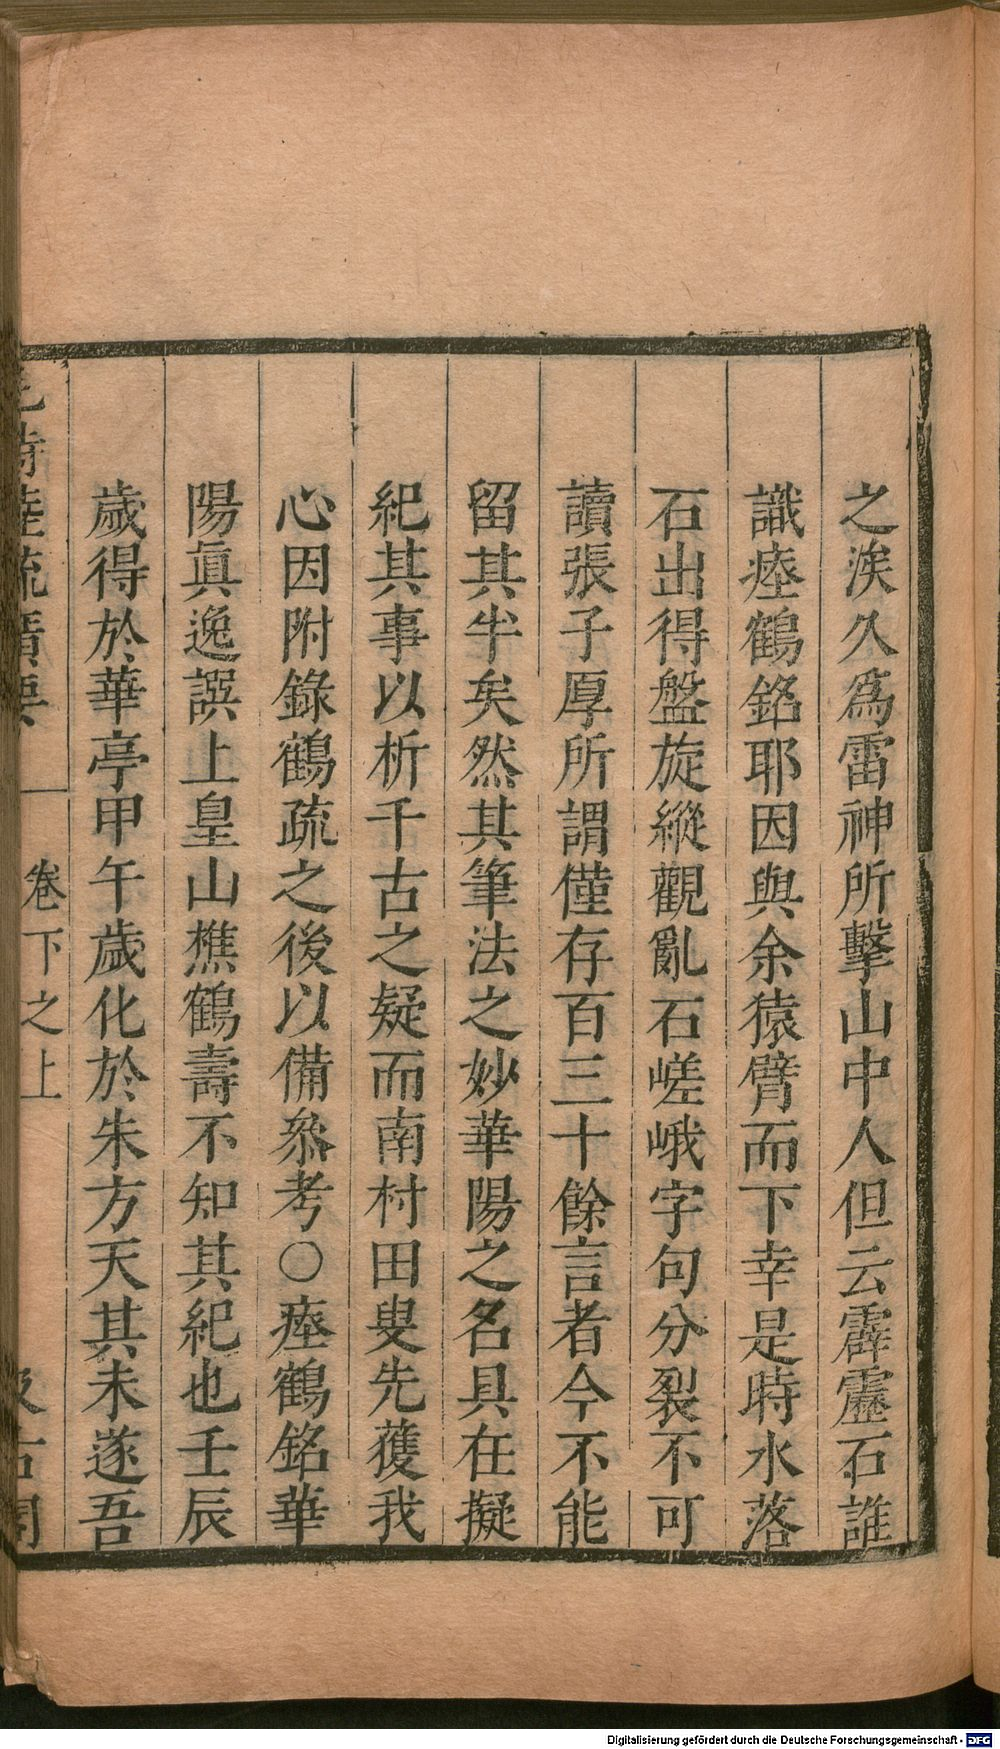 之涘久爲雷神所擊山中人但云霹靂石誰
識瘞鶴銘耶因與余猿臂而下幸是時水落
石出得盤旋縱觀亂石嵯峨字句分裂不可
讀張子厚所謂僅存百三十餘言者今不能
留其半矣然其筆法之妙華陽之名具在擬
紀其事以析千古之疑而南村田叟先獲我
心因附錄鶴疏之後以備叅考○瘞鶴銘華
陽眞逸譔上皇山樵鶴壽不知其紀也壬辰
歲得於華亭甲午歲化於朱方天其未遂吾
毛詩陸疏廣要 卷下之上 汲古閣
Digitalisierung gefördert durch die Deutsche Forschungsgemeinschaft - DFG